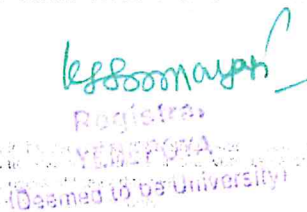 Registrar
YENEPOYA
(Deemed to be University)